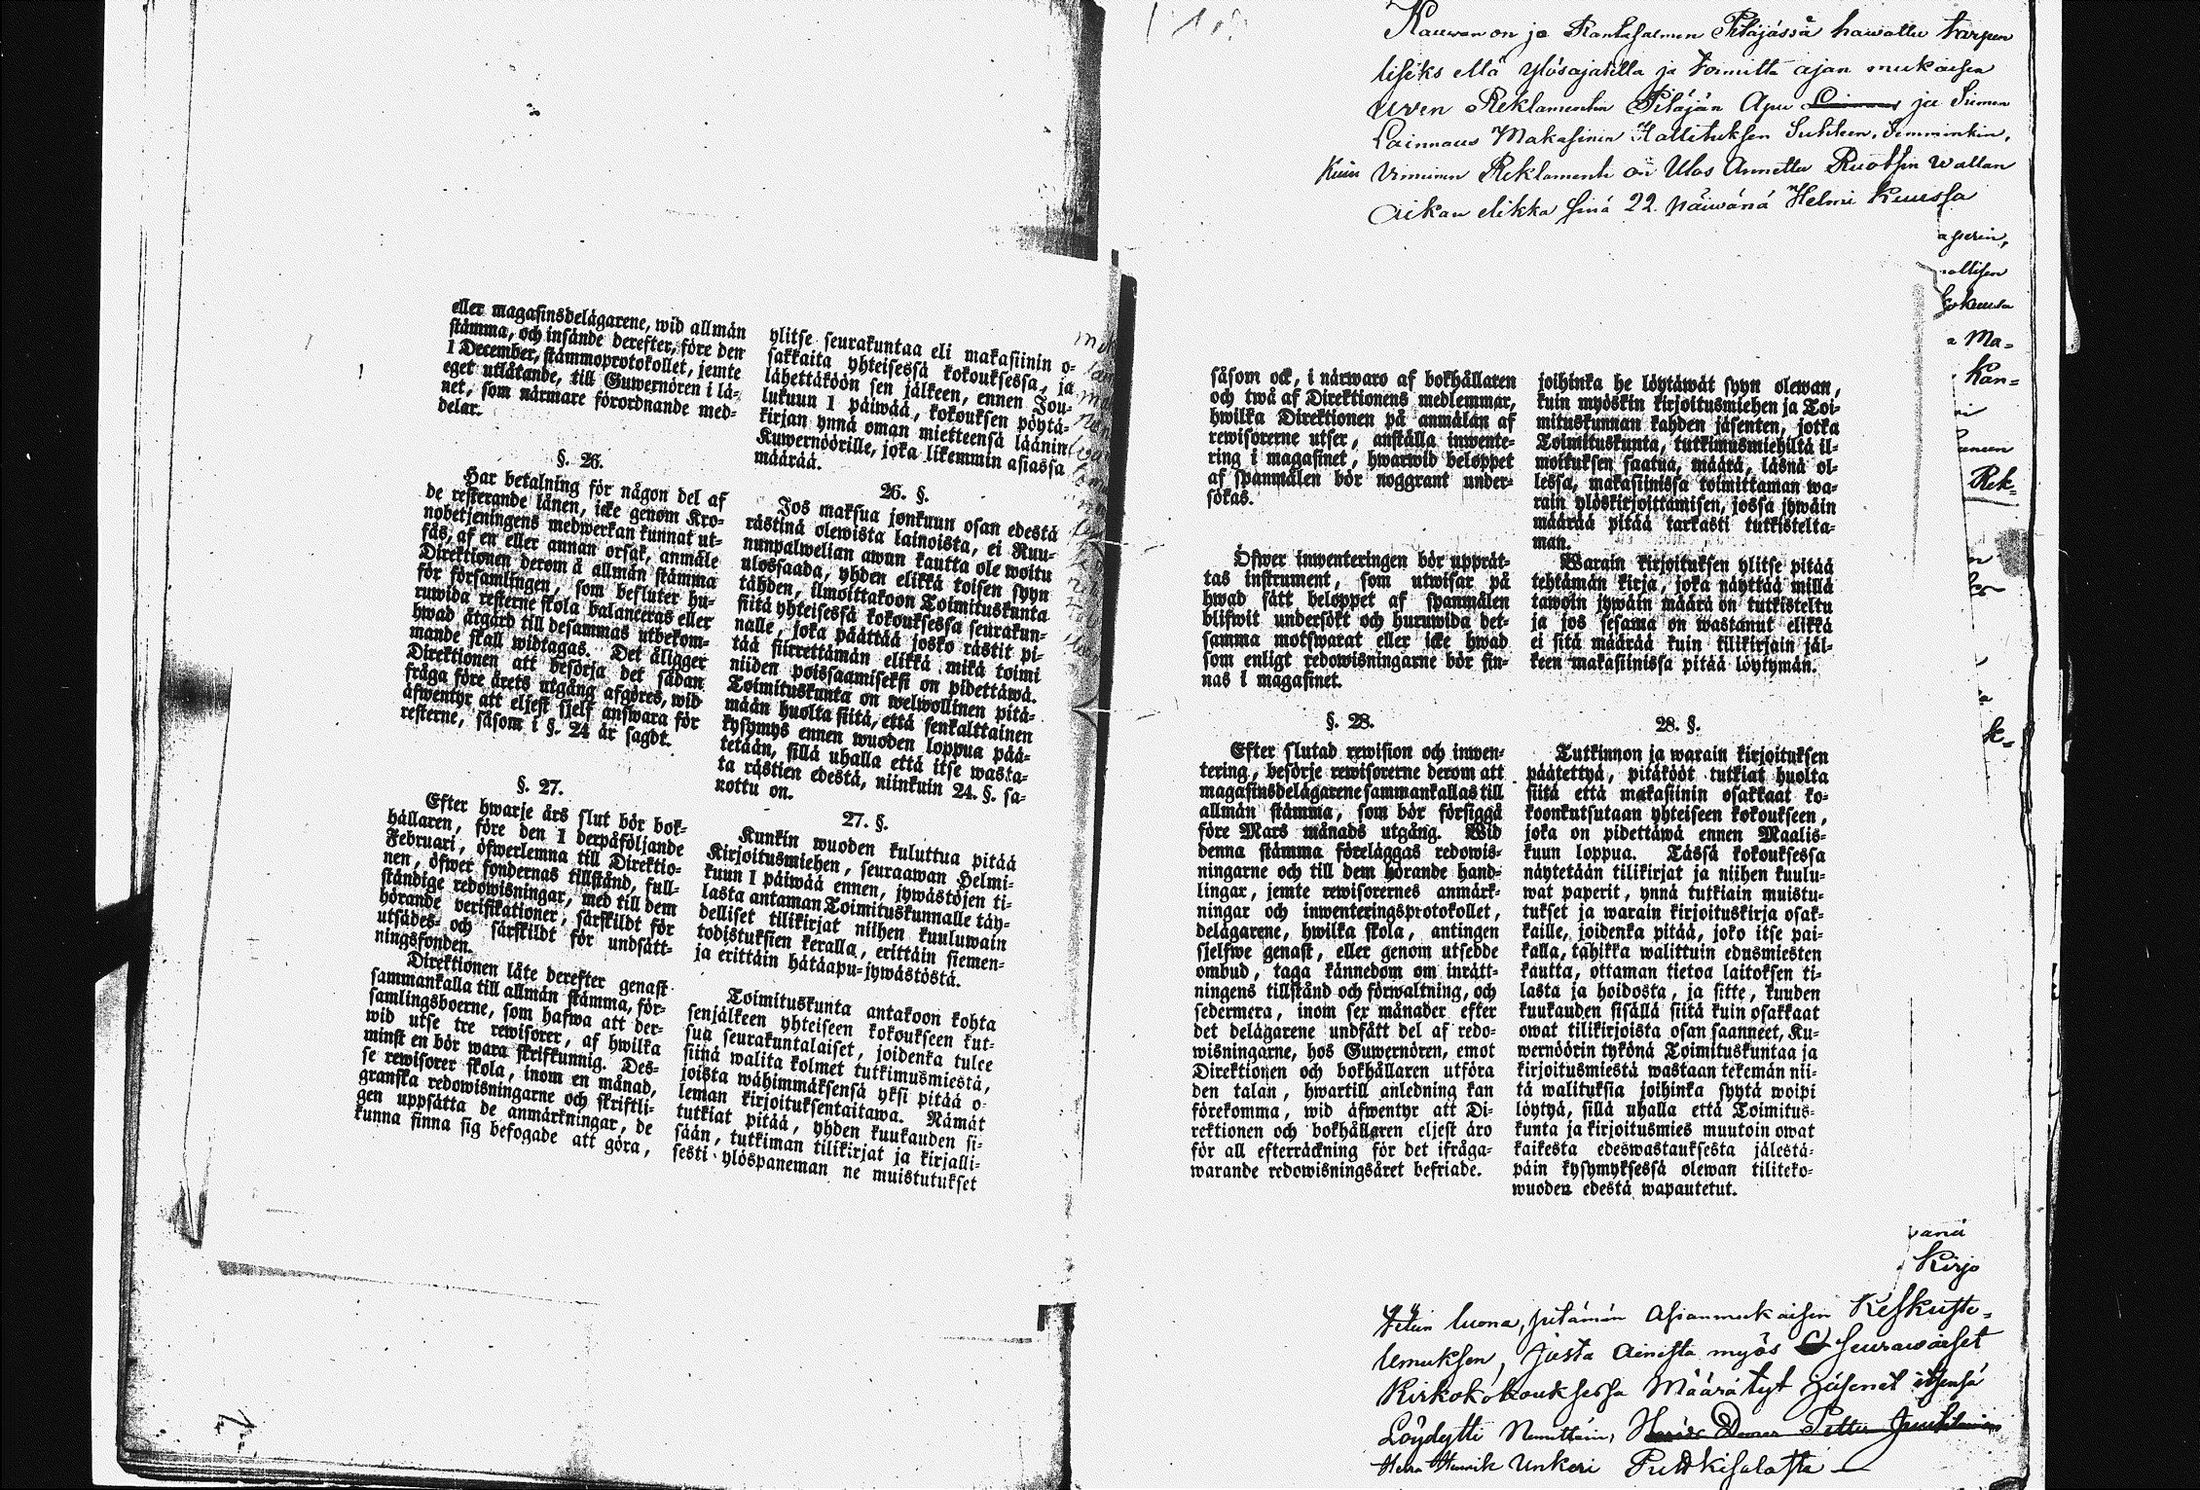 eller magasinsdelägarene, wid allmän
stämma, och insände derefter, före den
1 December, stämmoprotokollet, jemte
eget utlåtande, till Guwernören i lä-
net, som närmare förordnande med-
delar.
§. 26.
Har betalning för någon del af
de resterande lånen, icke genom Kro-
nobetjeningens medwerkan kunnat ut-
fås, af en eller annan orsak, anmäle
Direktionen derom å allmän stämma
för församlingen, som besluter hu-
ruwida resterne skola balanceras eller
hwad åtgärd till desammas utbekom-
mande skall widtagas. Det åligger
Direktionen att besörja det sådan
fråga före årets utgång afgöres, wid
äfwentyr att eljest sjelf answara för
resterne, såsom i §. 24 är sagdt.
§. 27.
Efter hwarje års slut bör bok-
hållaren, före den 1 derpåföljande
Februari, öfwerlemna till Direktio-
nen, öfwer fondernas tillstånd, full-
ständige redowisningar, med till dem
hörande verifikationer, särskildt för
utsädes- och särskildt för undsätt-
ningsfonden.
Direktionen låte derefter genast
sammankalla till allmän stämma, för-
samlingsboerne, som hafwa att der-
wid utse tre rewisorer, af hwilka
minst en bör wara skrifkunnig. Des-
se rewisorer skola, inom en månad,
granska redowisningarne och skriftli-
gen uppsätta de anmärkningar, de
kunna finna sig befogade att göra,
ylitse seurakuntaa eli makasiinin o-
sakkaita yhteisessä kokouksessa, ja
lähettäköön sen jälkeen, ennen Jou-
lukuun 1 päiwää, kokouksen pöytä-
kirjan ynnä oman mietteensä läänin
Kuwernöörille, joka likemmin asiassa
määrää.
26. §.
Jos maksua jonkuun osan edestä
rästinä olewista lainoista, ei Ruu-
nunpalwelian awun kautta ole woitu
ulossaada, yhden elikkä toisen syyn
tähden, ilmoittakoon Toimituskunta
siitä yhteisessä kokouksessa seurakun-
nalle, joka päättää josko rästit pi-
tää siirrettämän elikkä mikä toimi
niiden poissaamiseksi on pidettäwä.
Toimituskunta on welwollinen pitä-
mään huolta siitä, että senkalttainen
kysymys ennen wuoden loppua pää-
tetään, sillä uhalla että itse wasta-
ta rästien edestä, niinkuin 24. §. sa-
nottu on.
27. §.
Kunkin wuoden kuluttua pitää
Kirjoitusmiehen, seuraawan Helmi-
kuun 1 päiwää ennen, jywästöjen ti-
lasta antaman Toimituskunnalle täy-
delliset tilikirjat niihen kuuluwain
todistuksien keralla, erittäin siemen-
ja erittäin hätäapu-jywästöstä.
Toimituskunta antakoon kohta
senjälkeen yhteiseen kokoukseen kut-
sua seurakuntalaiset, joidenka tulee
siinä walita kolmet tutkimusmiestä,
joista wähimmäksensä yksi pitää o-
leman kirjoituksentaitawa. Nämät
tutkiat pitää, yhden kuukauden si-
sään, tutkiman tilikirjat ja kirjalli-
sesti ylöspaneman ne muistutukset
Kauwan on ja Rantasalmen Pitäjässä hawattu tarpeen
liseks että ylösajatella ja toimitta ajan mukaisen
uven Reklamentin Pitäjän Apu ja Siemen
Lainnaus Makasinin Hallituksen Suhteen, Semminkin,
Kuin Vimmen Reklamenti on Ulos Annettu Ruotsin wallan
Aikan elikka sinä 22. päiwänä Helmi Kuussa
såsom ock, i närwaro af bokhållaren
och twå af Direktionens medlemmar,
hwilka Direktionen på anmälan af
rewisorerne utser, anställa inwente-
ring i magasinet, hwarwid beloppet
af spanmålen bör noggrant under-
sökas.
Öfwer inwenteringen bör upprät-
tas instrument, som utwisar på
hwad sätt beloppet af spanmålen
blifwit undersökt och huruwida det-
samma motswarat eller icke hwad
som enligt redowisningarne bör fin-
nas i magasinet.
§. 28.
Efter slutad rewision och inwen-
tering, besörje rewisorerne derom att
magasinsdelägarene sammankallas till
allmän stämma, som bör försiggå
före Mars månads utgång. Wid
denna stämma föreläggas redowis-
ningarne och till dem hörande hand-
lingar, jemte rewisorernes anmärk-
ningar och inwenteringsprotokollet,
delägarene, hwilka skola, antingen
sjelfwe genast, eller genom utsedde
ombud, taga kännedom om inrätt-
ningens tillstånd och förwaltning, och
sedermera, inom sex månader efter
det delägarene undfått del af redo-
wisningarne, hos Guwernören, emot
Direktionen och bokhållaren utföra
den talan, hwartill anledning kan
förekomma, wid äfwentyr att Di-
rektionen och bokhållaren eljest äro
för all efterräckning för det ifråga-
warande redowisningsåret befriade.
joihinka he löytäwät syyn olewan,
kuin myöskin kirjoitusmiehen ja Toi-
mituskunnan kahden jäsenten, jotka
Toimituskunta, tutkimusmiehiltä il-
moituksen saatua, määrä, läsnä ol-
lessa, makasiinissa toimittaman wa-
rain ylöskirjoittamisen, jossa jywäin
määrää pitää tarkasti tutkistelta-
man.
Warain kirjoituksen ylitse pitää
tehtämän kirja, joka näyttää millä
tawoin jywäin määrä on tutkisteltu
ja jos sesama on wastanut elikkä
ei sitä määrää kuin tilikirjain jäl-
keen makasiinissa pitää löytymän.
28. §.
Tutkinnon ja warain kirjoituksen
päätettyä, pitäkööt tutkiat huolta
siitä että makasiinin osakkaat ko-
koonkutsutaan yhteiseen kokoukseen,
joka on pidettäwä ennen Maalis-
kuun loppua. Tässä kokouksessa
näytetään tilikirjat ja niihen kuulu-
wat paperit, ynnä tutkiain muistu-
tukset ja warain kirjoituskirja osak-
kaille, joidenka pitää, joko itse pai-
kalla, tahikka walittuin edusmiesten
kautta, ottaman tietoa laitoksen ti-
lasta ja hoidosta, ja sitte, kuuden
kuukauden sisällä siitä kuin osakkaat
owat tilikirjoista osan saanneet, Ku-
wernöörin tykönä Toimituskuntaa ja
kirjoitusmiestä wastaan tekemän nii-
tä walituksia joihinka syytä woipi
löytyä, sillä uhalla että Toimitus-
kunta ja kirjoitusmies muutoin owat
kaikesta edeswastauksesta jälestä-
päin kysymyksessä olewan tiliteko-
wuoden edestä wapautetut.
Ma-
Kan-
Rek-
Kirjo
luona, pitämän Asianmukaisen Keskuste-
lemuksen, Josta Aineista myös Seurawaiset
Kirkokokouksessa Määrätyt Jäsenet itsensä
Löydytti Nimittäin,
Herra Henrik Unkeri Putkisalosta